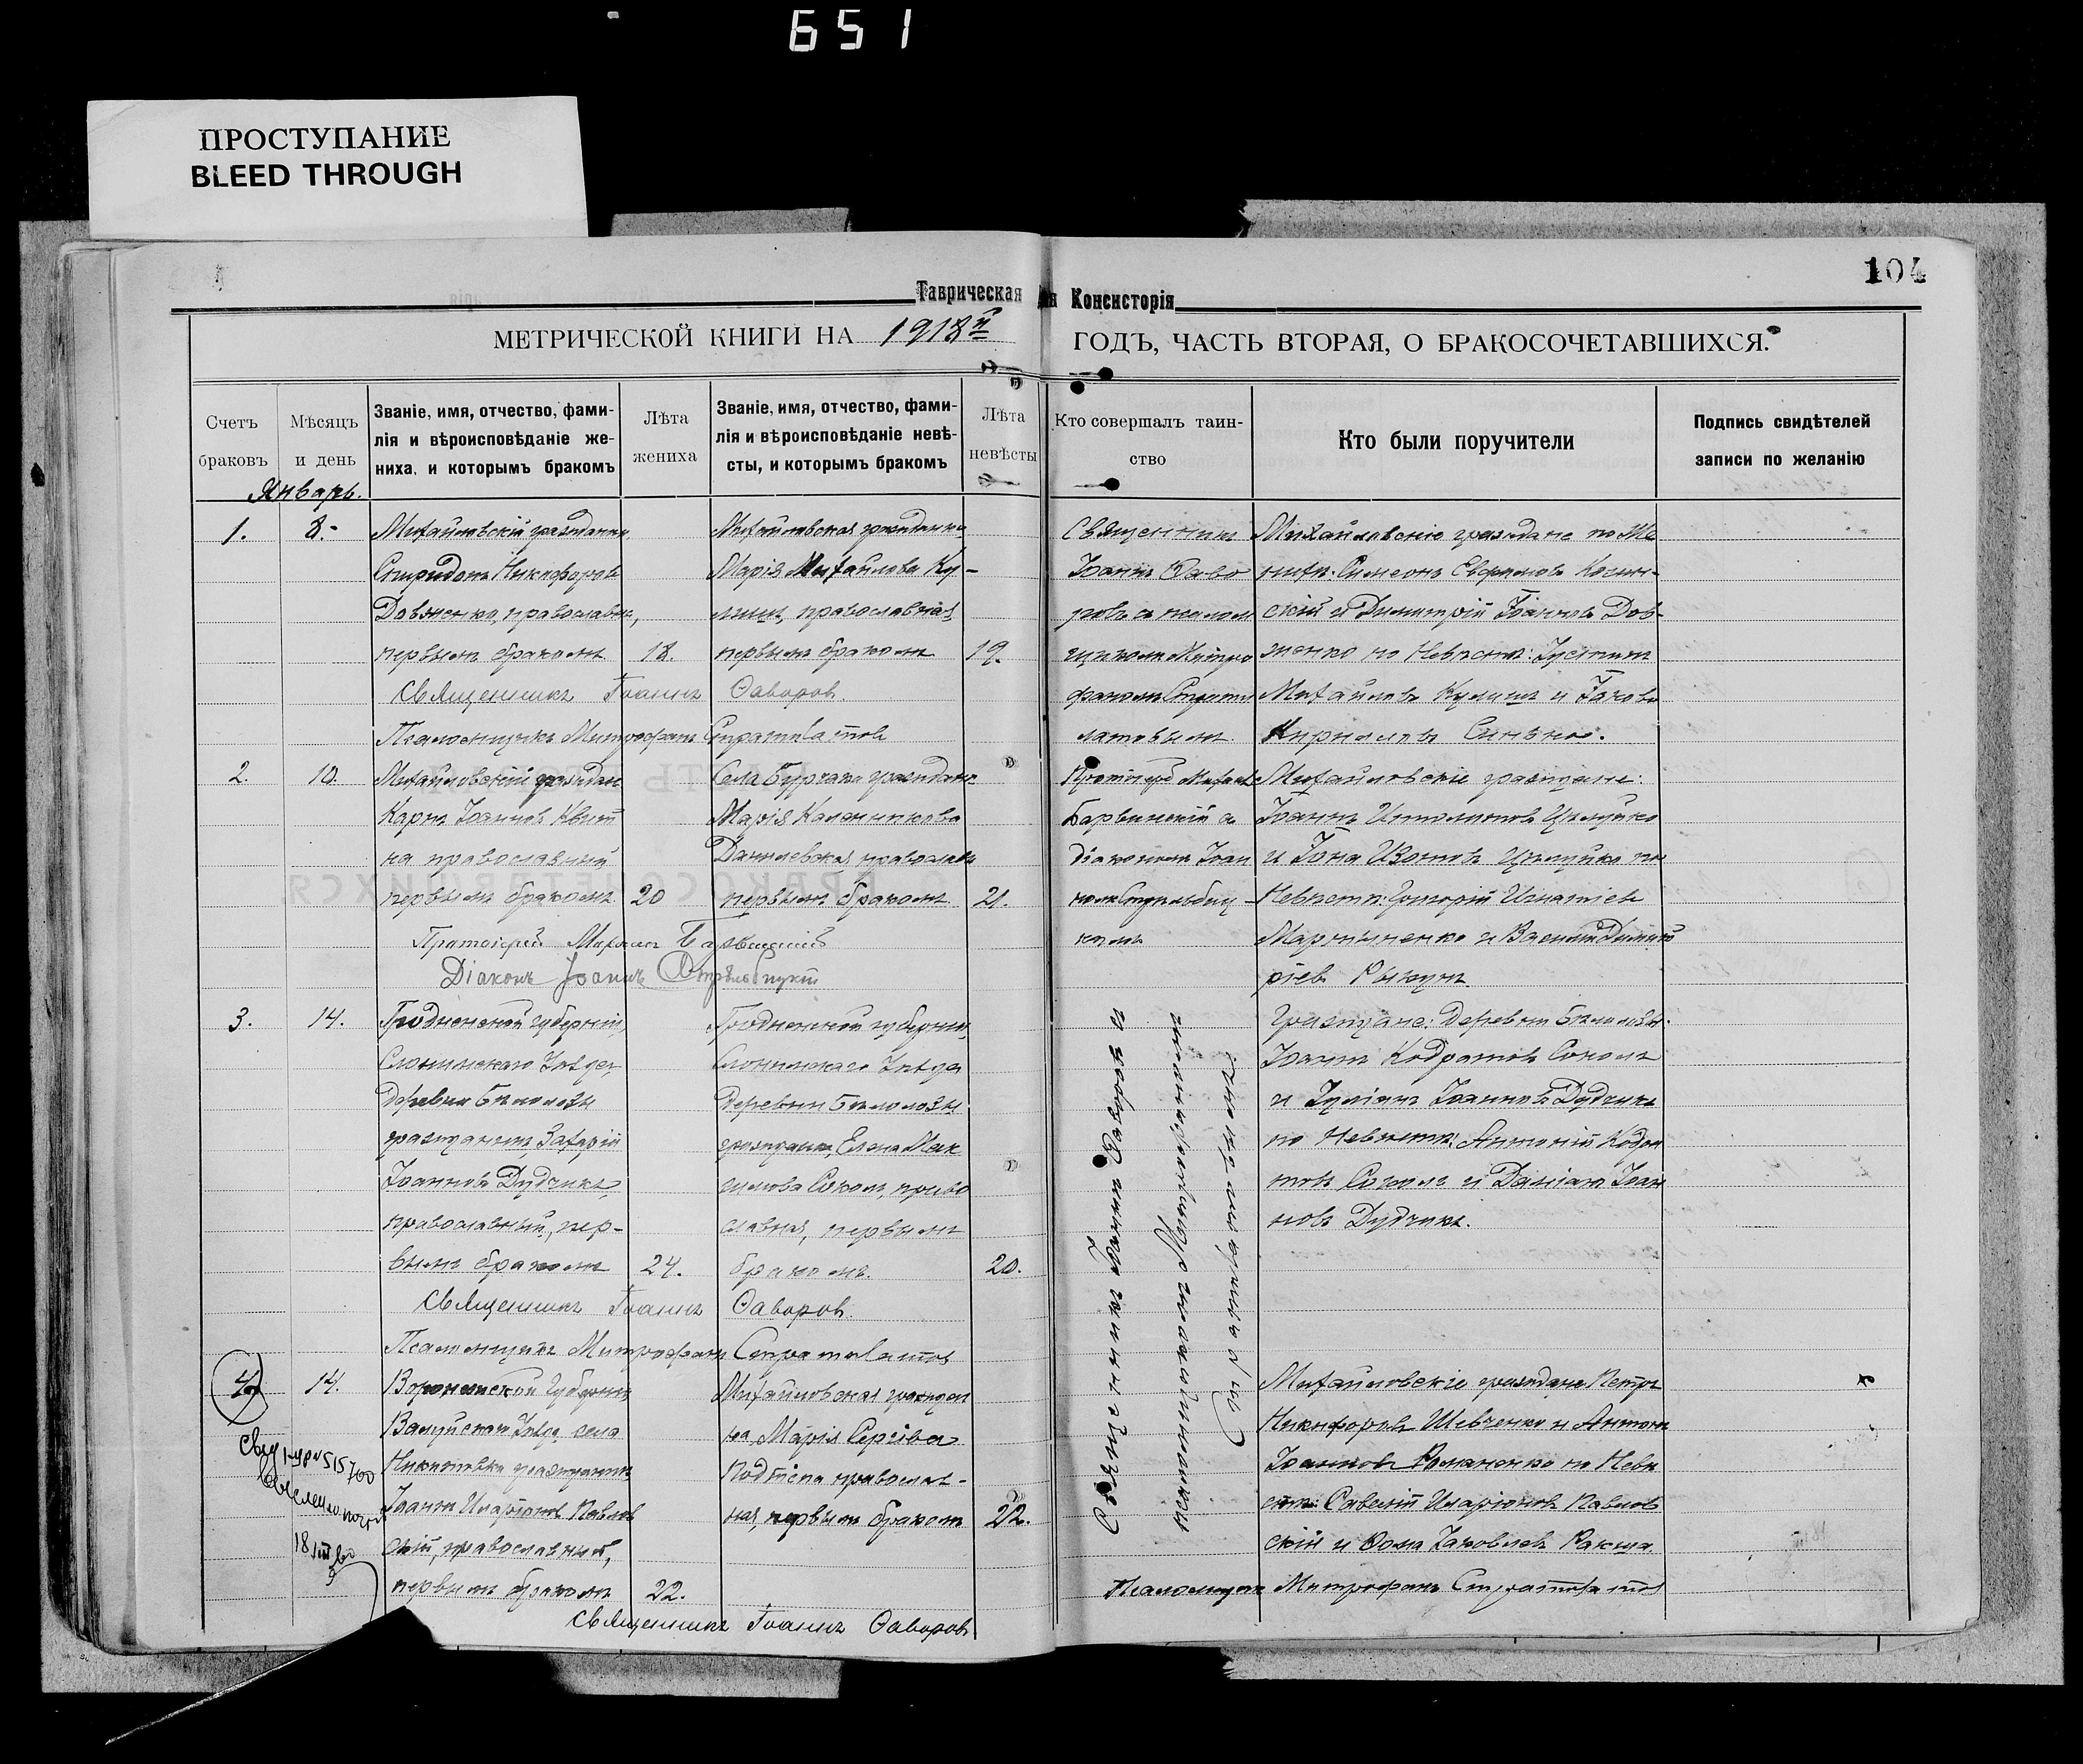 651
ПРОСТУПАНИЕ
BLEED THROUGH
104
Таврическая
Консисторія
МЕТРИЧЕСКОЙ КНИГИ НА 1918й
ГОДЪ, ЧАСТЬ ВТОРАЯ, О БРАКОСОЧЕТАВШИХСЯ.
Счетъ браковъ
Мѣсяцъ и день
Званіе, имя, отчество, фами-
лія и вѣроисповѣданіе же-
ниха, и которымъ бракомъ
Лѣта жениха
Званіе, имя, отчество, фами-
лія и вѣроисповѣданіе невѣ-
сты, и которымъ бракомъ
Лѣта невѣсты
Кто совершалъ таин-
ство
Кто были поручители
Подпись свидѣтелей
записи по желанію
Январь.
1.
8.
Михайловскій
Спиридонъ Никифоровъ
Довженко,
первымъ бракомъ
18.
Михайловская гражданка
Марія Михайлова Ку-
лишъ, православная
первымъ бракомъ
19.
Священникъ
Іоаннъ Ѳаво
ровъ съ псалом
щикомъ Митро
фаномъ
латовымъ.
Михайловскіе граждане по Же
ниху: Симеонъ Евфимовъ
скій и Димитрій Іоанновъ Дов-
женко по Невѣстѣ: Іустинъ
Михайловъ Кулишъ и Іаковъ
Кирилловъ
Священникъ Іоаннъ Ѳаворов
Псаломщикъ Митрофанъ Стратилатовъ
2.
10.
Михайловскій граждан
Карпъ Іоанновъ Квит
ка православный,
первымъ бракомъ
20
Села Бурчака граждан
Марія Каленикова
Данилевская, православ
первымъ бракомъ
21.
Протоіерей Михаилъ
Барвинскій съ
діакономъ Іоан
номъ Стрельбиц-
кимъ
Михайловскіе граждане:
Іоаннъ Ипполитовъ
и Іона
Невѣстѣ: Григорій Игнатіев
Мартыненко и Василій Димит
ріев
Протоіерей Михаилъ Барвинскій
Діаконъ Іоаннъ Стрѣльбицкій
3.
14.
Гродненской губерніи,
Слонимскаго Уѣзда,
Деревни Бѣлолозы
гражданинъ, Захарій
Іоанновъ Дудчикъ,
православный, пер-
вымъ бракомъ
24.
Гродненской губерніи,
Слонимскаго Уѣзда
Деревни Бѣлолозы
гражданка, Елена Мак
симова Соколъ, право
славная, первымъ
бракомъ.
20.
Священникъ Іоаннъ Ѳаворовъ съ
псаломщикомъ Митрофаномъ
Стратилатовымъ.
Граждане: Деревни Бѣлолозы.
Іоаннъ Кодратовъ Соколъ
и Іуліанъ Іоанновъ Дудчикъ
по Невѣстѣ: Антоній Кодра
товъ Соколъ и Даміанъ Іоан
новъ Дудчикъ.
Священникъ Іоаннъ Ѳаворов
Псаломщикъ Митрофанъ Стратилатов
4
14.
Воронежской Губерніи,
Валуйскаго Уѣзда, села
Никитовки гражданинъ
Іоаннъ Иларіоновъ Павлов
скій, православный,
первымъ бракомъ
22.
Михайловская граждан
ка, Марія Сергіева
православ-
ная, первымъ бракомъ
22.
Михайловскіе граждане Петръ
Никифоровъ Шевченко и Антонъ
Іоанновъ Романенко по Невѣ
стѣ: Савелій Иларіоновъ Павлов
скій и Ѳома Іаковлевъ Ракша.
Псаломщикъ Митрофанъ Стратилатов
Священникъ Іоаннъ Ѳаворов